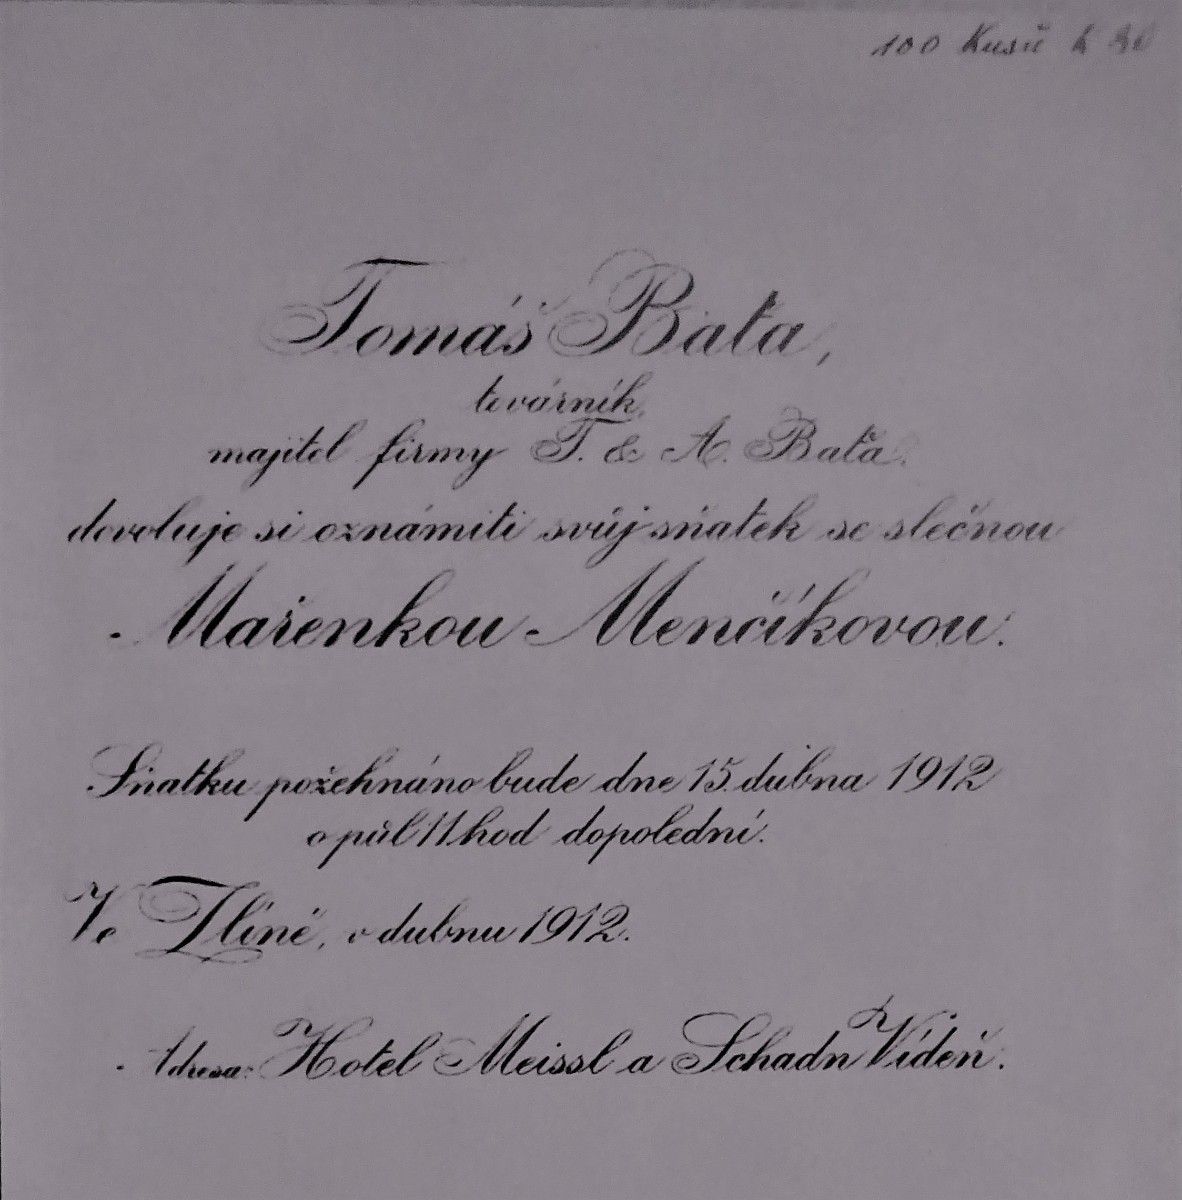 100 Kusů
Tomáš Baťa,
továrník,
majitel firmy T. & A. Baťa.
dovoluje si oznámiti svůj sňatek se slečnou
Mařenkou Menčíkovou.
Sňatku požehnáno bude dne 15. dubna 1912
o půl 11 hod dopolední.
Ve Zlíně, v dubnu 1912.
Adresa: Hotel Meissl a Schadn Vídeň.